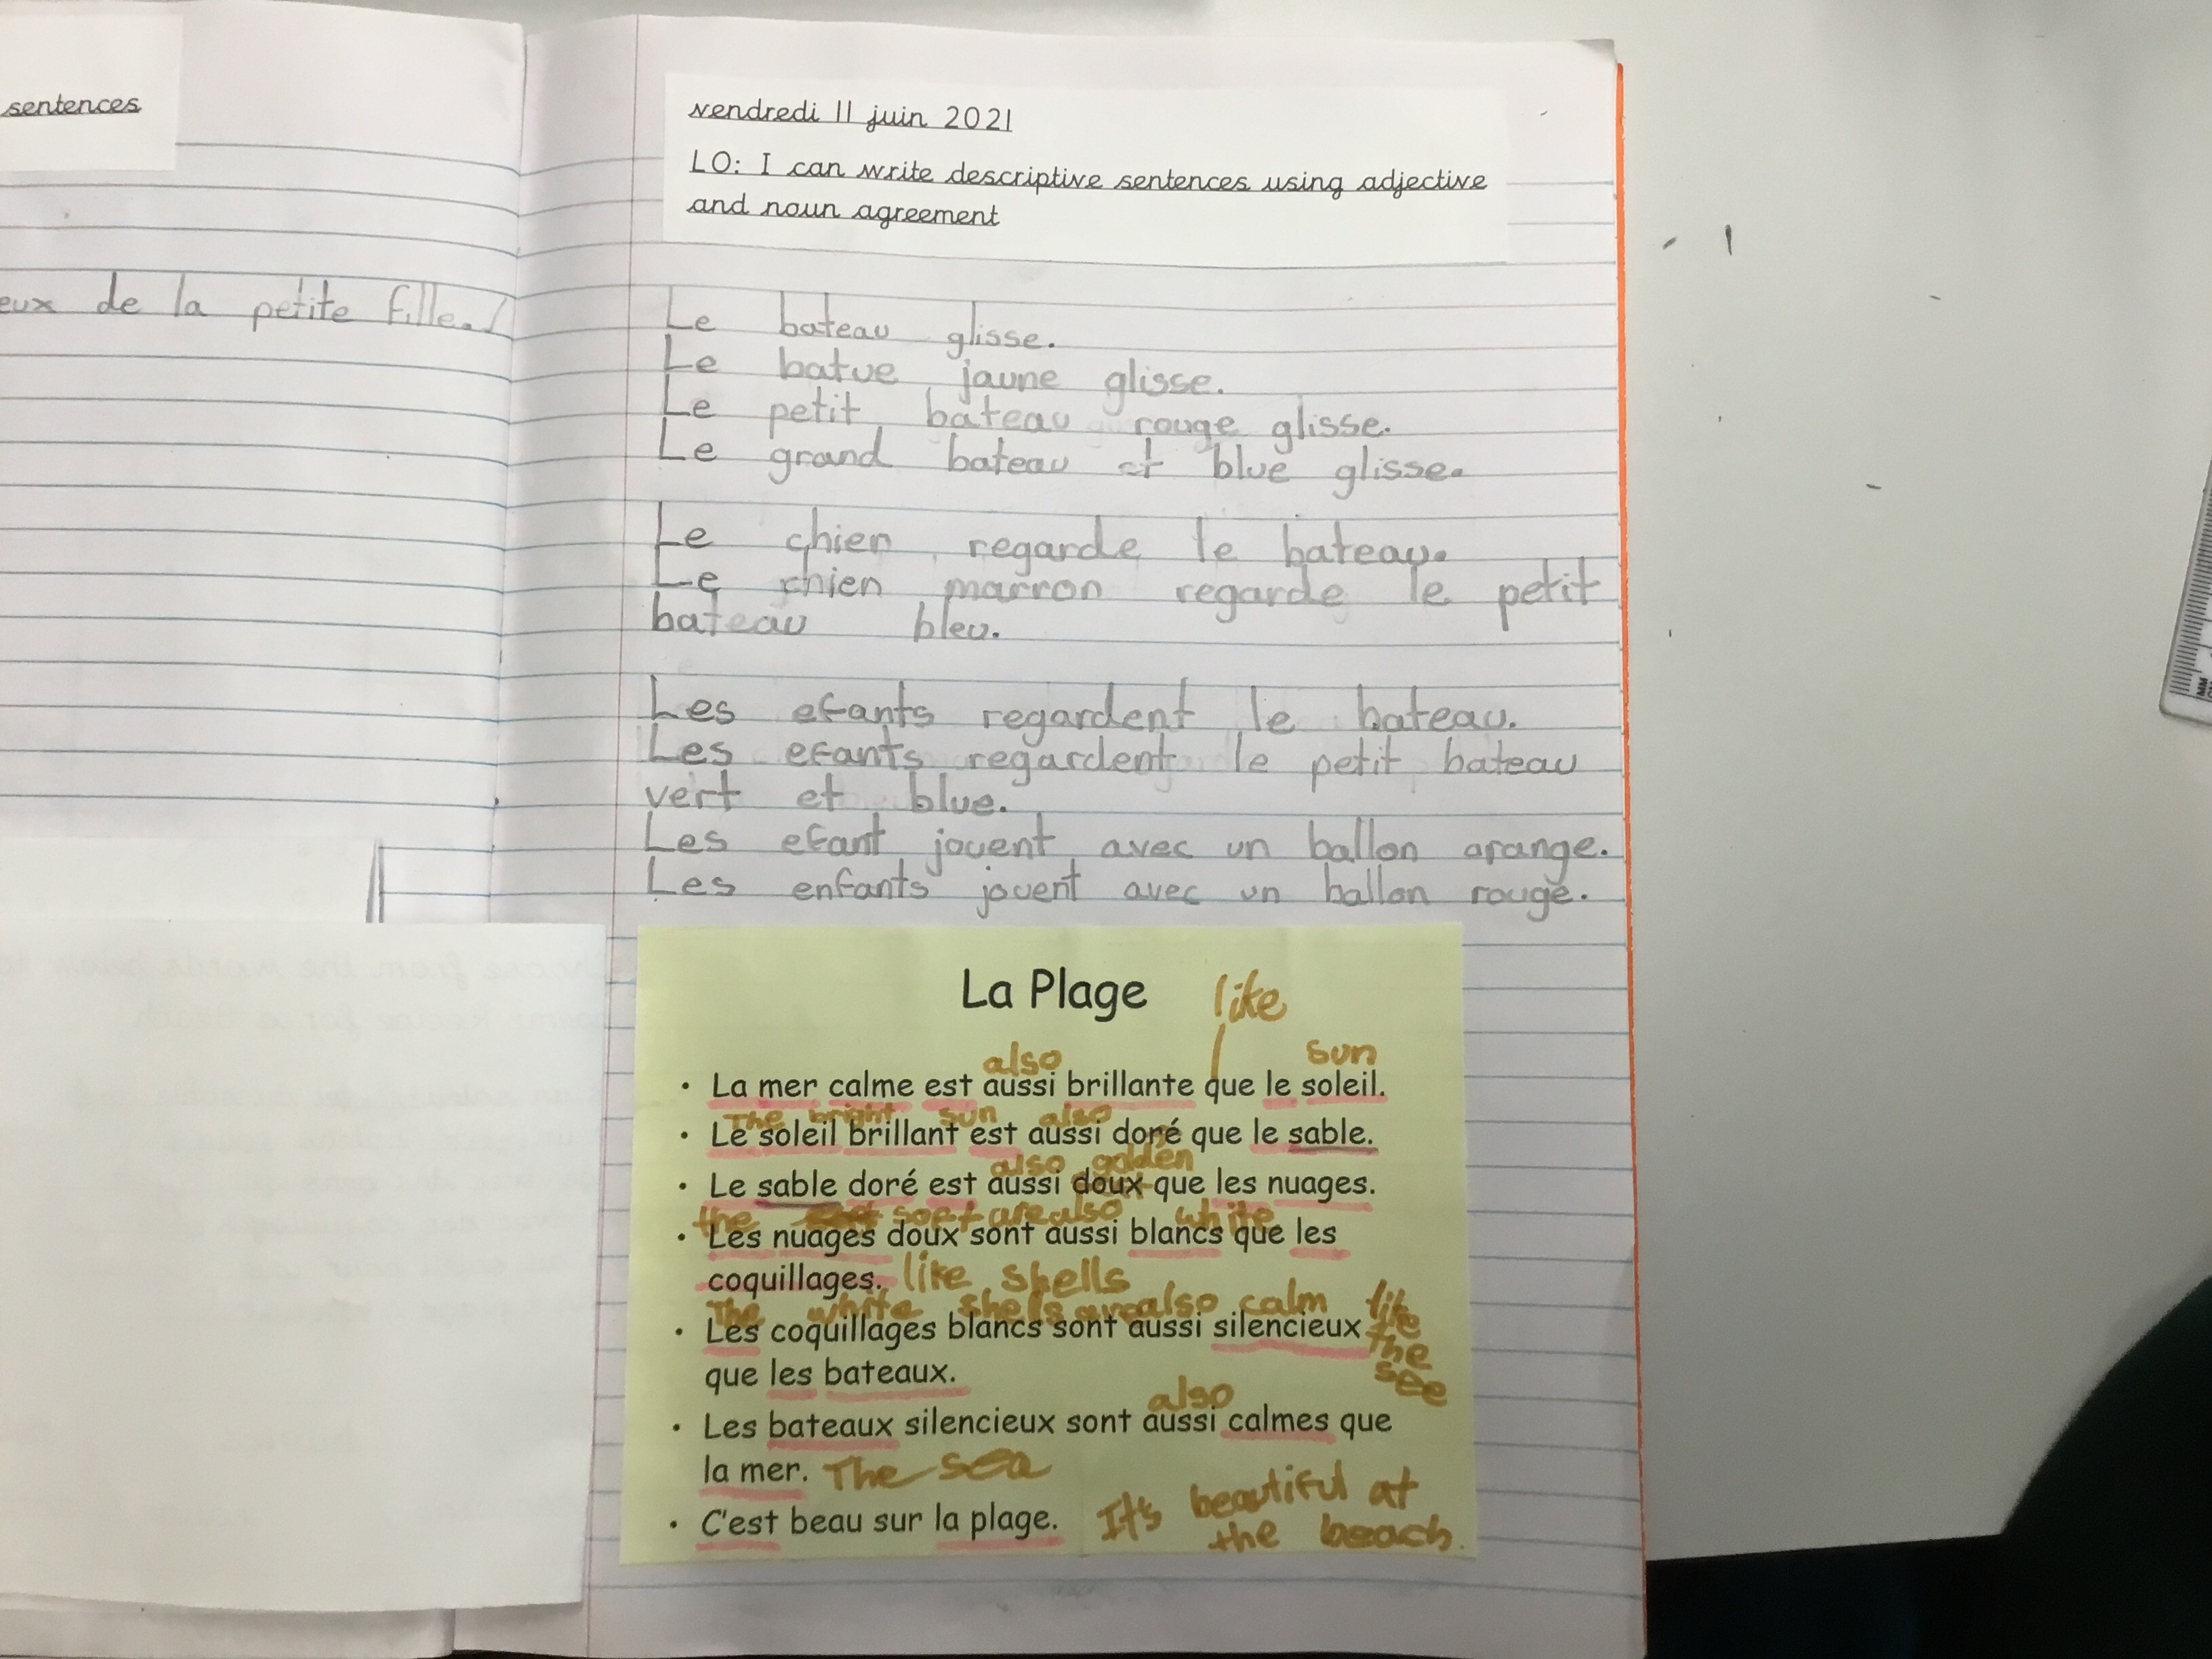 sentences
eux de la petite fille.
vendredi 11 juin 2021
LO: I can write descriptive sentences using adjective
and noun agreement
Le bateau glisse.
Le batue jaune glisse.
Le petit bateau rouge glisse.
Le grand bateau et blue glisse.
Le chien regarde le bateau.
Le chien marron regarde le petit
bateau bleu.
Les efants regardent le bateau.
Les efants regardent le petit bateau
vert et blue.
Les efant jouent avec un ballon orange.
Les enfants jouent avec un ballon rouge.
La Plage
like
also sun
• La mer calme est aussi brillante que le soleil.
The bright sun also
• Le soleil brillant est aussi doré que le sable.
also golden
• Le sable doré est aussi doux que les nuages.
the soft are also white
• Les nuages doux sont aussi blancs que les
coquillages. like shells
The white shells are also calm like
the
see
• Les coquillages blancs sont aussi silencieux
que les bateaux.
also
• Les bateaux silencieux sont aussi calmes que
la mer. The sea
• C'est beau sur la plage. It's beautiful at
the beach.
MM